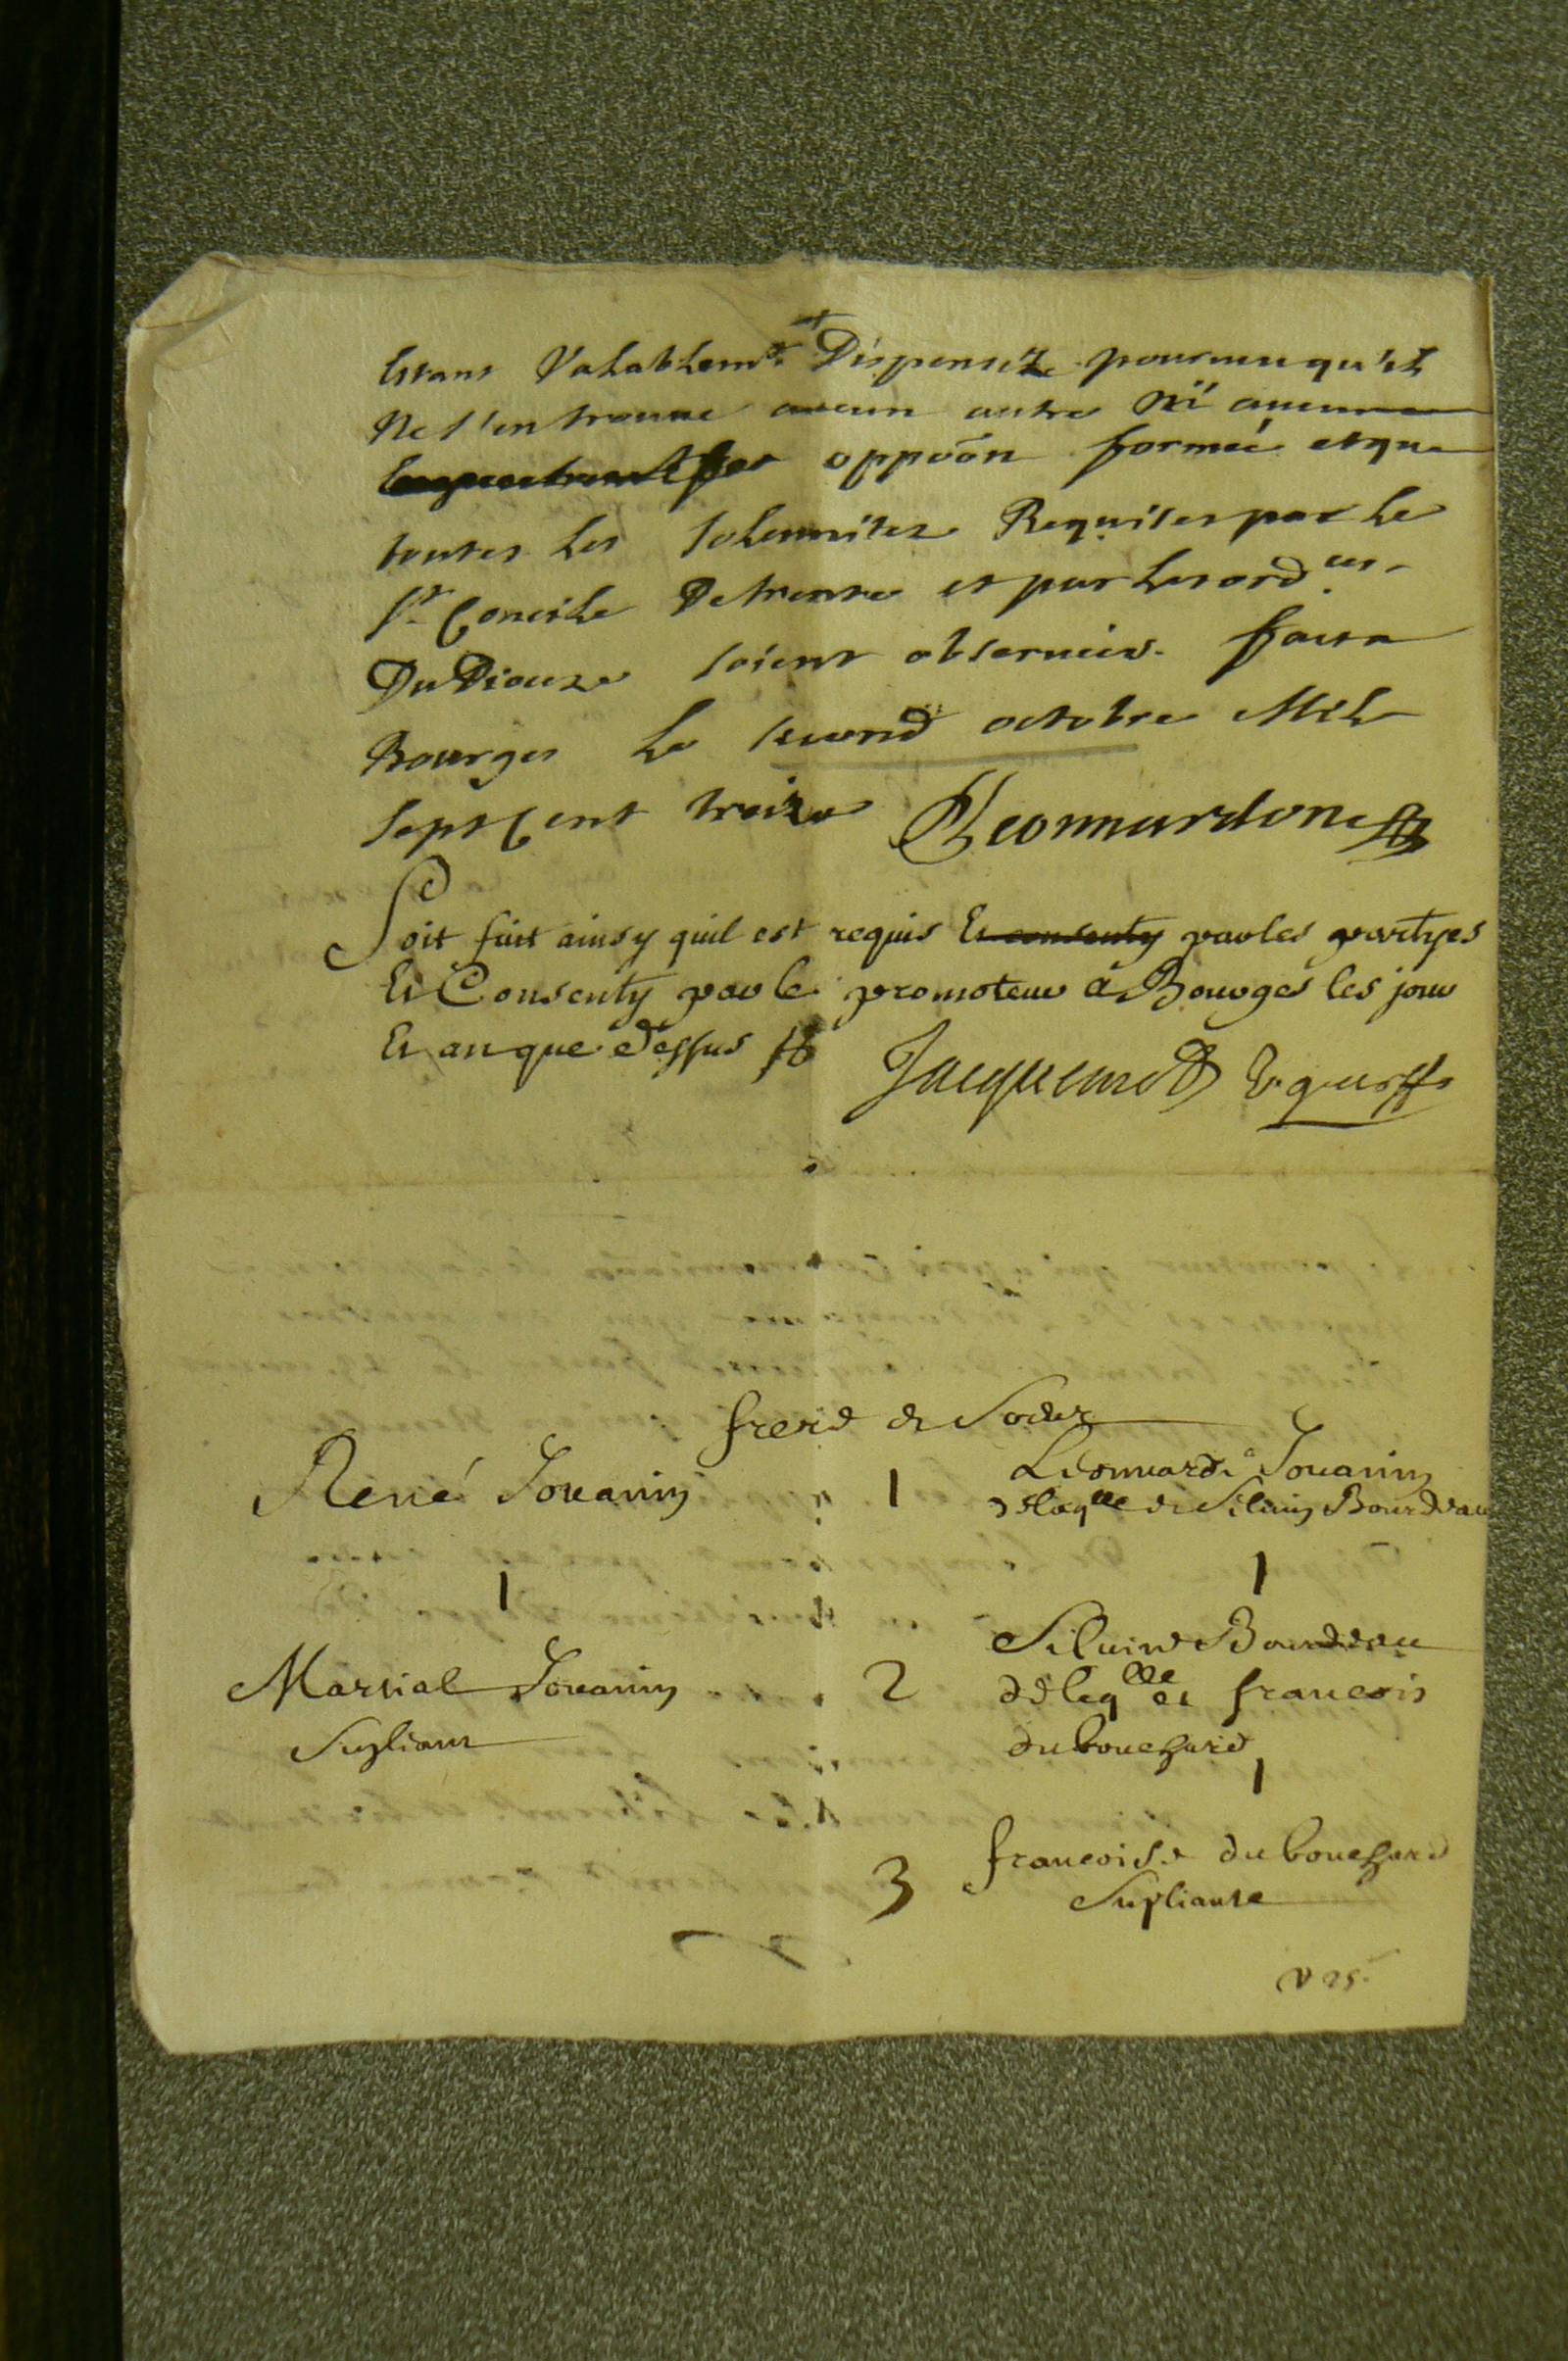 Estant Valablemt. Dispensez pourueu qu'il
Ne s'en trouue aucun autre Ni aucune
oppoõn formée et que
toutes les solemnitez Requises par le
St. Concile De trente et par les ordces.
Du Dioceze soient obseruées. fait a
Bourges le second octobre Mil
sept Cent treize Leonnardon
Soit fait ainsy quil est requis Et consenty par les partyes
Et Consenty par le promoteur à Bourges les jour
Et an que dessus
Jacquemet
frere et Soeur
René Jouanin 1 Léonnarde Jouanin
de laqlle et Siluin Bourdeau
1 1
Siluine Bourdeau
Martial Jouanin 2 de laqlle et francois
Supliant du bouchard
1
francoise du bouchard
3 Supliante
v 25.